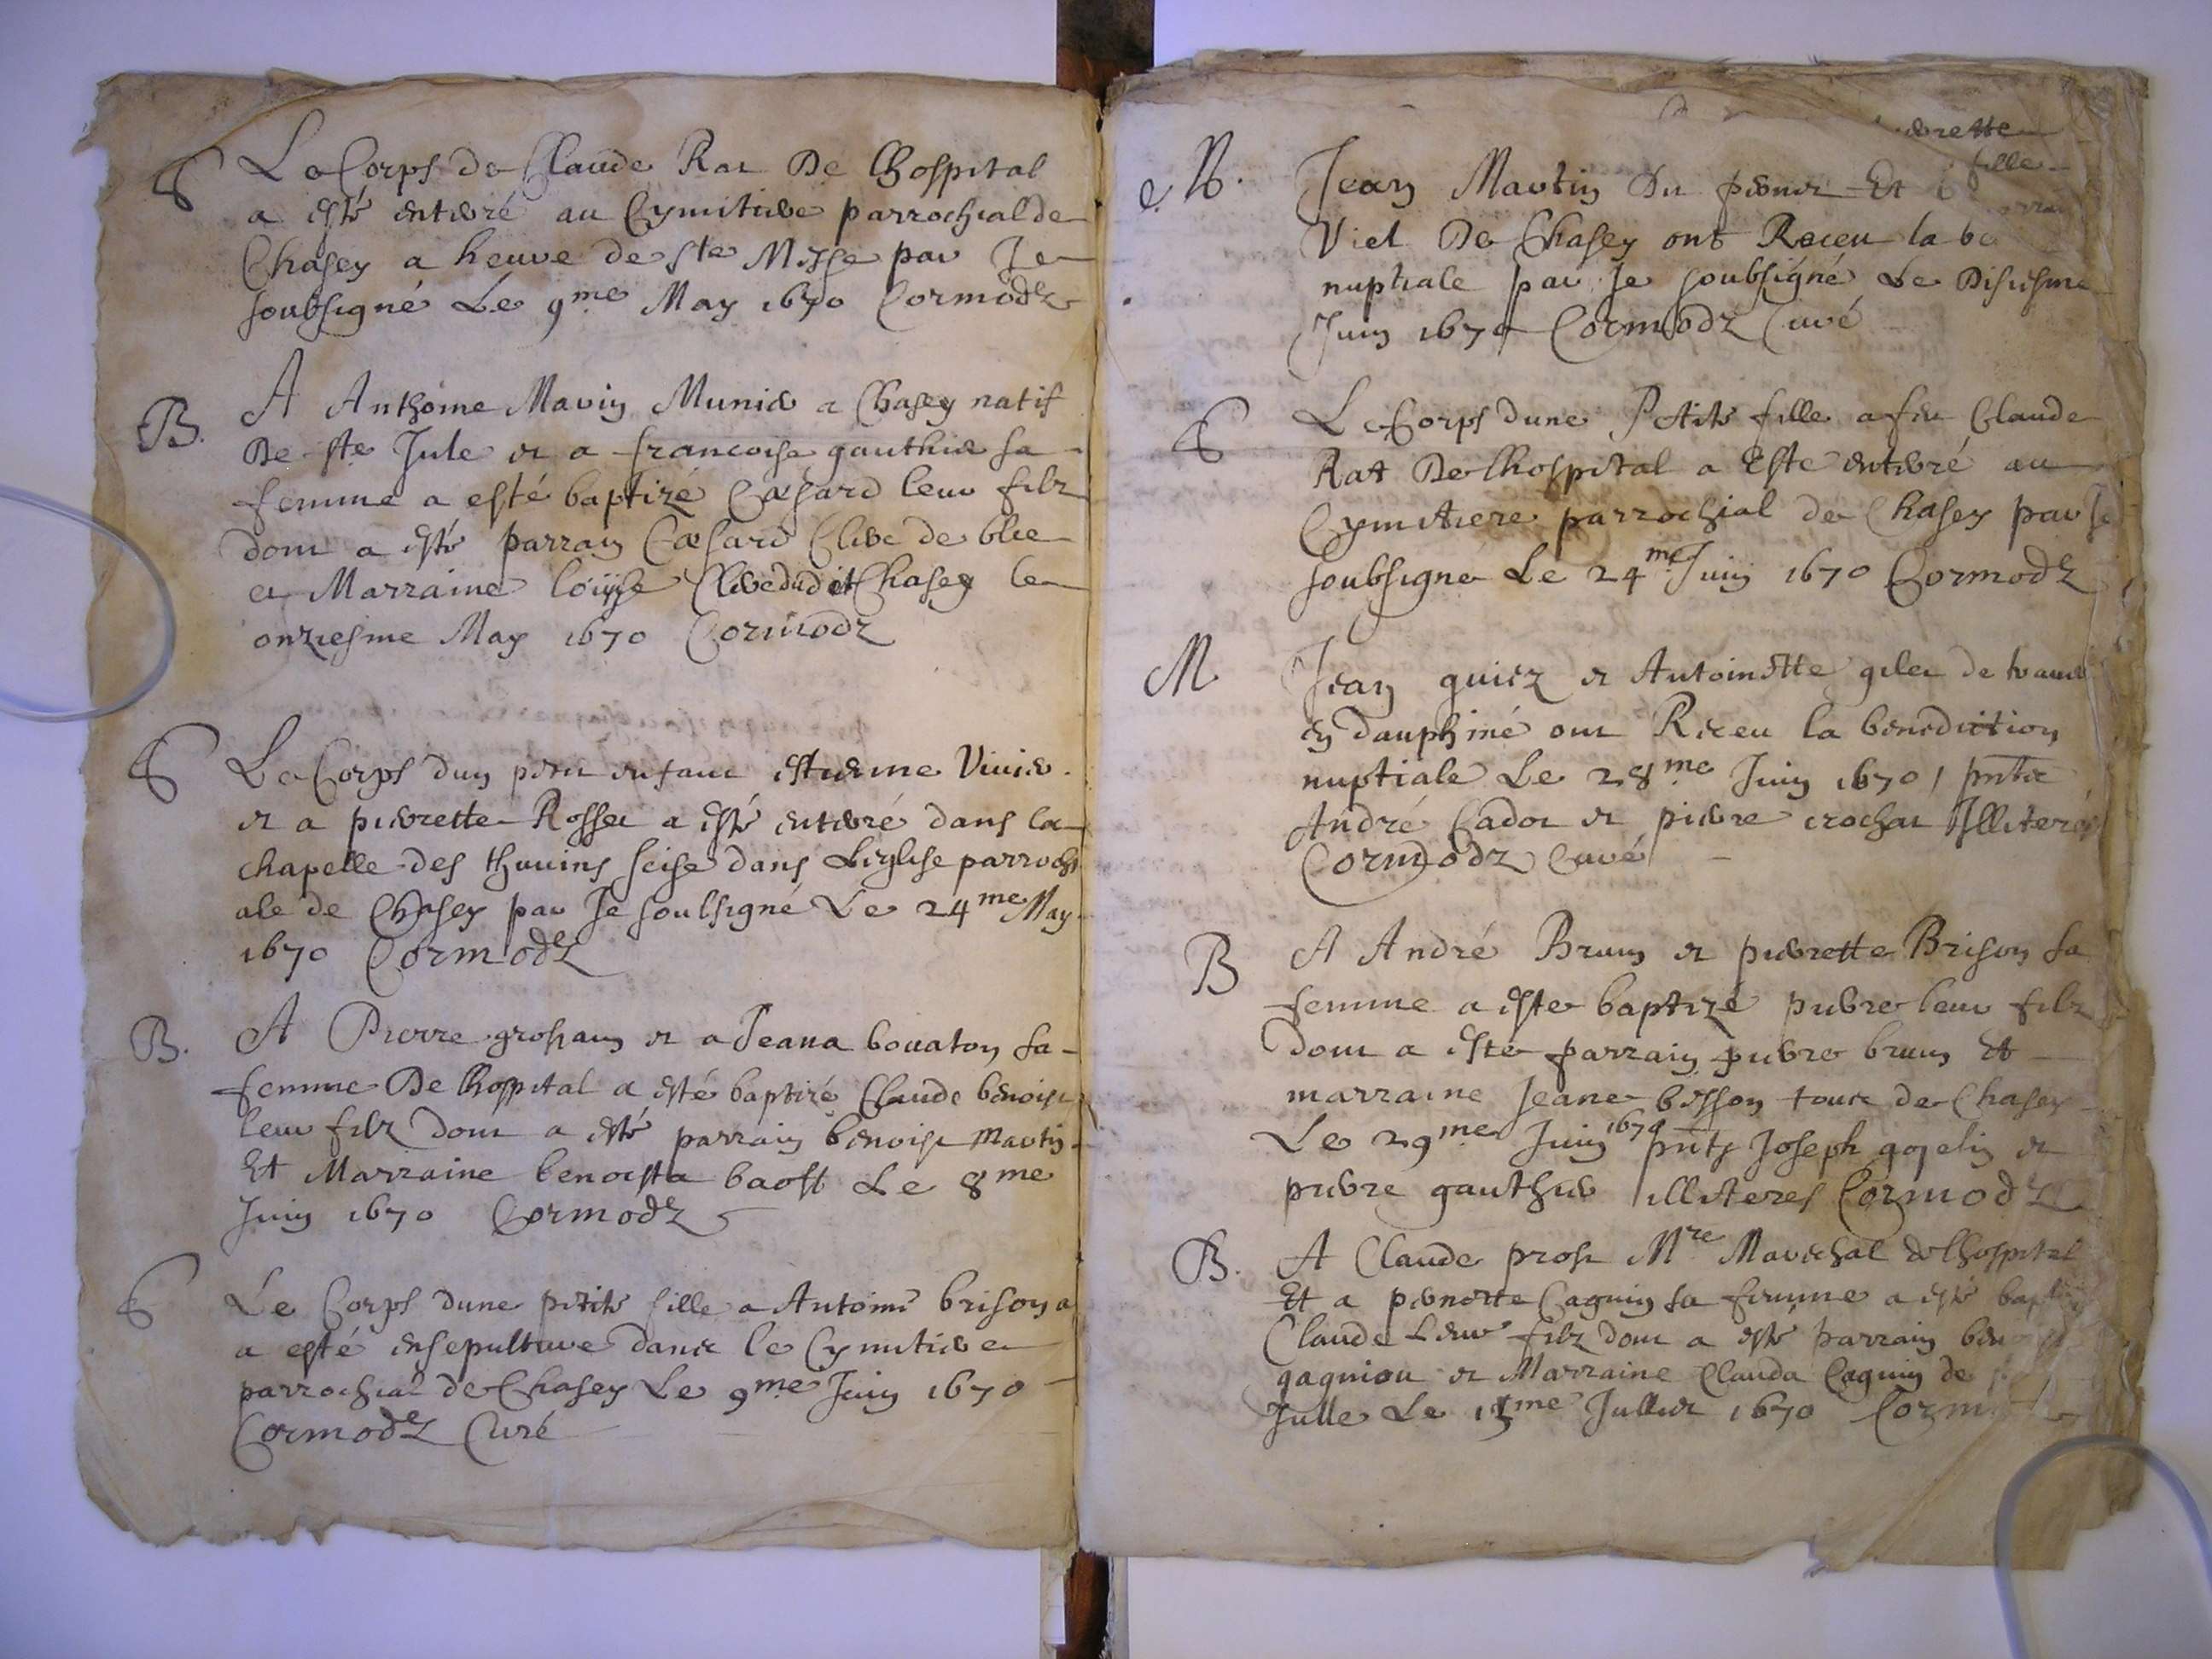 S Le Corps de Claude Rat De lhospital
a esté enterré au Cymitiere parrochial de
Chasey a heure de ste Messe par Je
soubsigné Le 9me May 1670 Cormodz
B. A Anthoine Marin Munier a Chasey natif
De ste Jule et a francoise gauthier sa
femme a esté baptizé Cæsard leur filz
dont a esté parrain Cæsard Clere de blie
et Marraine loüyse Clere dudit Chasey le
onziesme May 1670 Cormodz
S Le Corps dun petit enfant estienne Vivier
et a pierrette Rosset a esté enterré dans la
chapelle des thuvins seise dans Leglise parrochi
ale de Chasey par Je soubsigné Le 24me May
1670 Cormodz
B. A Pierre grosjam et a Jeana bovaton sa
femme De lhospital a esté baptizé Claude benoist
leur filz dont a esté parrain benoist Martin
Et Marraine benoista baost Le 8me
Juin 1670 Cormodz
S Le Corps dune petite fille a Antoine brison a
a esté ensepulture dans le Cymitiere
parrochial de Chasey Le 9me Juin 1670
Cormodz Curé
rette
fille
M. Jean Martin Du Et
Viel De Chasey ont Receu la be
nuptiale par Je soubsigné Le Disiesme
Juin 1670 Cormodz Curé
S Le Corps dune Petite fille a feu Claude
Rat De lhospital a Este enterré au
Cymitiere parrochial de Chasey par Je
soubsigné Le 24me Juin 1670 Cormodz
M Jean guiez et Antoinette gilet de
en dauphiné ont Receu la benediction
nuptiale Le 28me Juin 1670 / pntz
André Cadot et pierre crochat Illiterés
Cormodz Curé
B A André Brun et pierrette Brison sa
femme a este baptizé pierre leur filz
dont a este parrain pierre brun Et
marraine Jeane besson tout de Chasey
Le 29me Juin 1670 pntz Joseph gojelin et
pierre gauthier illiteres Cormodz
B. A Claude prost Mre Marechal de lhospital
Et a pernette Cagnin sa femme a esté bapt
Claude Leur filz dont a esté parrain ben
gagniou et Marraine Clauda Cagnin de
Julle Le me Jullet 1670 Corm